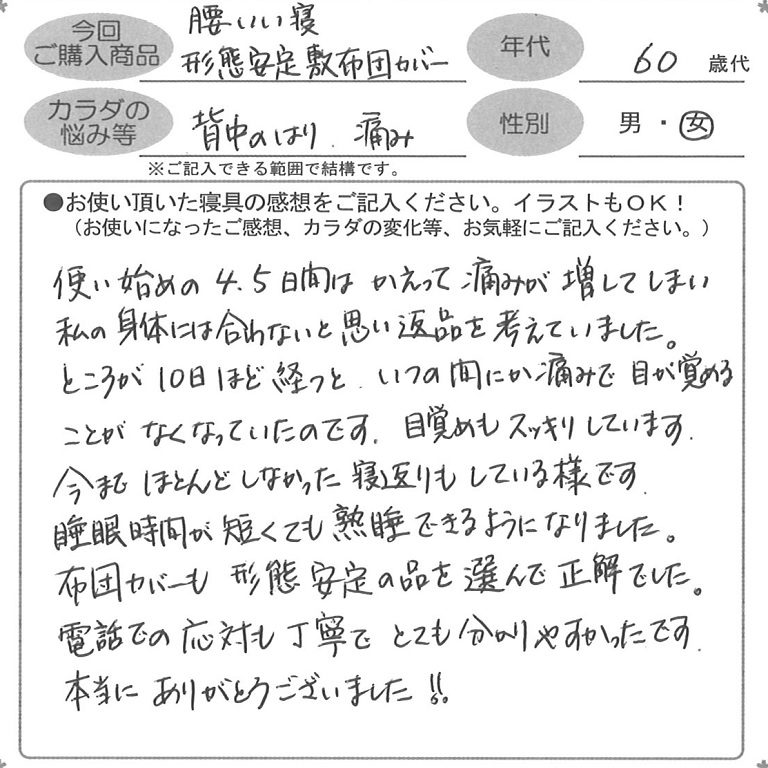 今回
ご購入商品
腰いい寝
形態安定敷布団カバー
年代
60 歳代
カラダの
悩み等
背中のはり 痛み
性別
男・女
※ご記入できる範囲で結構です。
●お使い頂いた寝具の感想をご記入ください。イラストもOK！
（お使いになったご感想、カラダの変化等、お気軽にご記入ください。）
使い始めの 4.5日間は かえって 痛みが 増してしまい
私の身体には合わないと思い返品を考えていました。
ところが 10日ほど経つと、いつの間にか痛みで目が覚める
ことが なくなっていたのです。目覚めもスッキリしています。
今まで ほとんどしなかった 寝返りも している様です。
睡眠時間が短くても熟睡できるようになりました。
布団カバーも 形態安定の品を選んで正解でした。
電話での応対も丁寧で とても分かりやすかったです。
本当に ありがとうございました!!